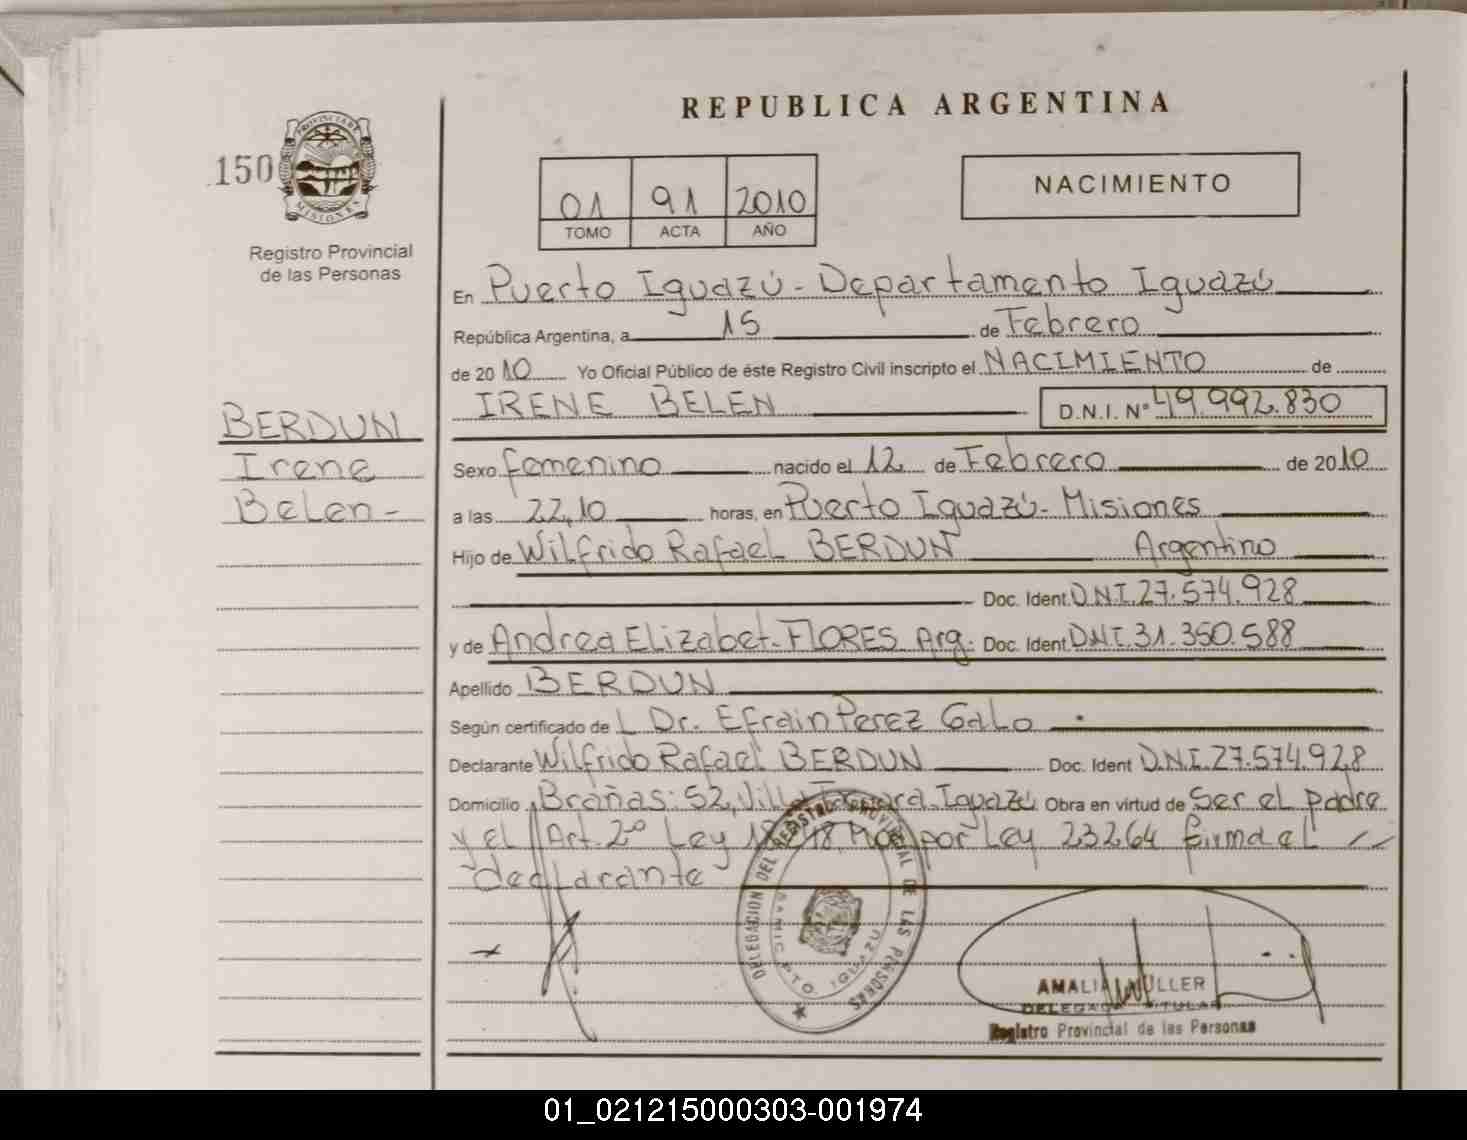 REPUBLICA ARGENTINA
150
PROVINCIA DE
MISIONES
Registro Provincial
de las Personas
01 91 2010
TOMO ACTA AÑO
NACIMIENTO
En Puerto Iguazú - Departamento Iguazú
República Argentina, a 15 de Febrero
de 2010 Yo Oficial Público de éste Registro Civil inscripto el NACIMIENTO de
IRENE BELEN D.N.I. Nº 49.992.830
BERDUN
Irene
Belen -
Sexo femenino nacido el 12 de Febrero de 2010
a las 22,10 horas, en Puerto Iguazú - Misiones
Hijo de Wilfrido Rafael BERDUN Argentino
Doc. Ident. D.N.I. 27.574.928
y de Andrea Elizabet - FLORES Arg. Doc. Ident D.N.I. 31.350.588
Apellido BERDUN
Según certificado de L Dr. Efrain Perez Galo
Declarante Wilfrido Rafael BERDUN Doc. Ident D.N.I. 27.574.928
Domicilio Brañas: 52, Iguazú Obra en virtud de Ser el padre
y el Art. 2º Ley por Ley 23264 firma el
declarante
DELEGACION DEL REGISTRO PROVINCIAL DE LAS PERSONAS
PTO. IGUAZU
AMALIA MULLER
DELEGADA TITULAR
Registro Provincial de las Personas
01_021215000303-001974